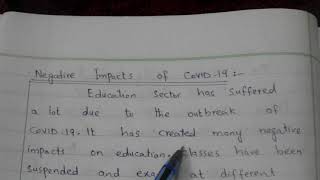 Negative Impacts of COVID-19:-
Education Sector has suffered
a lot due to the outbreak of
COVID-19. It has created many negative
impacts on education. classes have been
suspended and at different